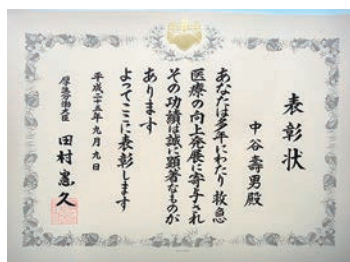 表彰状
中谷壽男殿
あなたは多年にわたり救急
医療の向上発展に寄与され
その功績は誠に顕著なものが
あります
よってここに表彰します
平成二十五年九月九日
厚生労働大臣 田村憲久